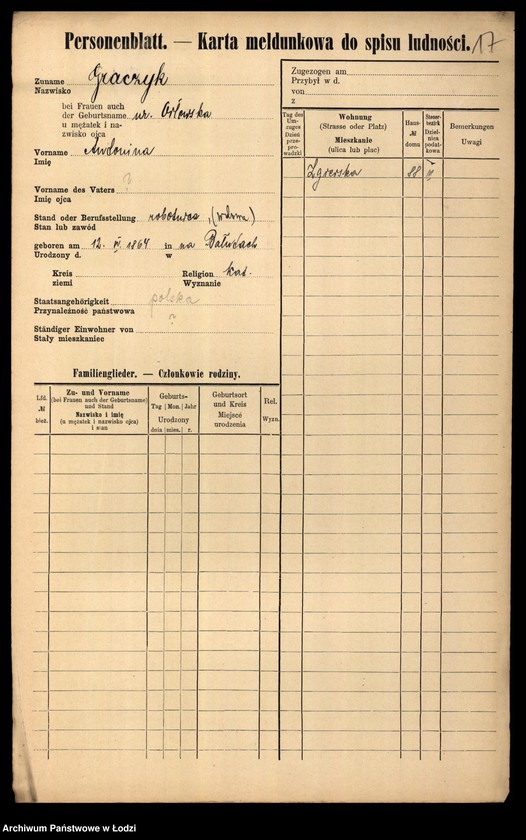 Personenblatt. — Karta meldunkowa do spisu ludności. 17
Zuname Graczyk
Nazwisko
bei Frauen auch
der Geburtsname ur. Orłowska
u mężatek i na-
zwisko ojca
Vorname Antonina
Imię
Vorname des Vaters ?
Imię ojca
Stand oder Berufsstellung robotnica, (wdowa)
Stan lub zawód
geboren am 12. IV. 1864 in na Bałutach
Urodzony d. w
Kreis Religion kat.
ziemi Wyznanie
Staatsangehörigkeit polska
Przynależność państwowa
Ständiger Einwohner von ?
Stały mieszkaniec
Zugezogen am
Przybył w d.
von
z
Tag des Um-zuges Dzień prze-prowadzki
Wohnung
(Strasse oder Platz)
Mieszkanie
(ulica lub plac)
Haus-
№
domu
Steuer-
bezirk
Dziel-
nica
podat-
kowa
Bemerkungen
Uwagi
Zgierska 88 IV
Familienglieder. — Członkowie rodziny.
Lfd.
№
bież.
Zu- und Vorname
(bei Frauen auch der Geburtsname)
und Stand
Nazwisko i imię
(u mężatek i nazwisko ojca)
i stan
Geburts-
Tag Mon. Jahr
Urodzony
dnia mies. r.
Geburtsort
und Kreis
Miejsce
urodzenia
Rel.
Wyzn.
Archiwum Państwowe w Łodzi